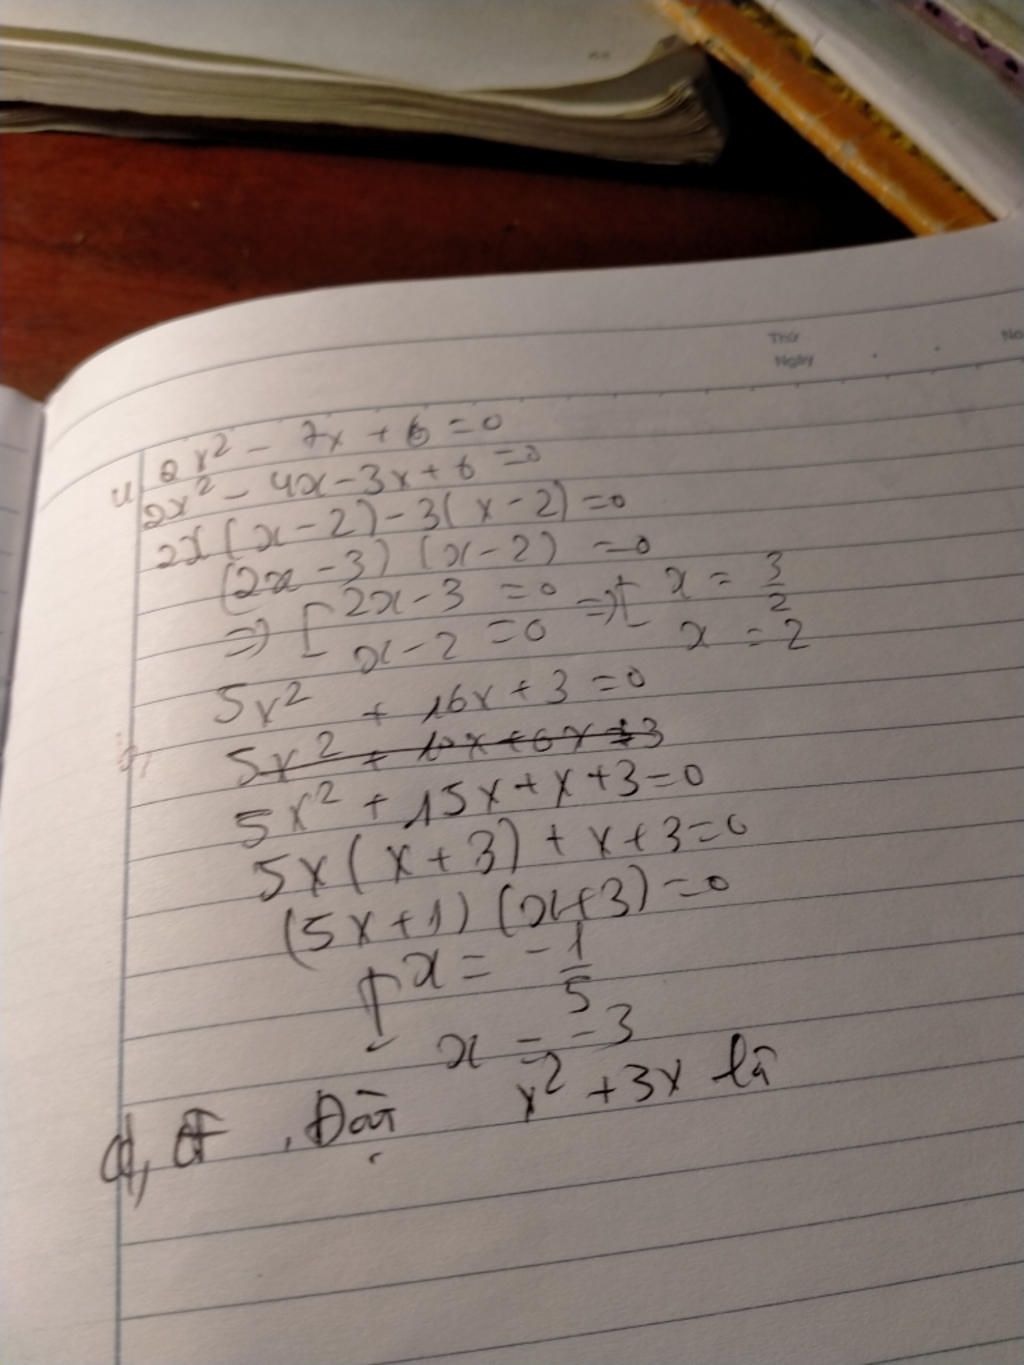 Thứ
Ngày
No
2x² - 7x + 6 = 0
2x² - 4x - 3x + 6 = 0
2x(x - 2) - 3(x - 2) = 0
(2x - 3)(x - 2) = 0
=> [ 2x - 3 = 0 => [ x = 3/2
x - 2 = 0 x = 2
5x² + 16x + 3 = 0
5x² + 10x + 6x + 3
5x² + 15x + x + 3 = 0
5x(x + 3) + x + 3 = 0
(5x + 1)(x + 3) = 0
[ x = -1/5
x = -3
d, Đặt x² + 3x là